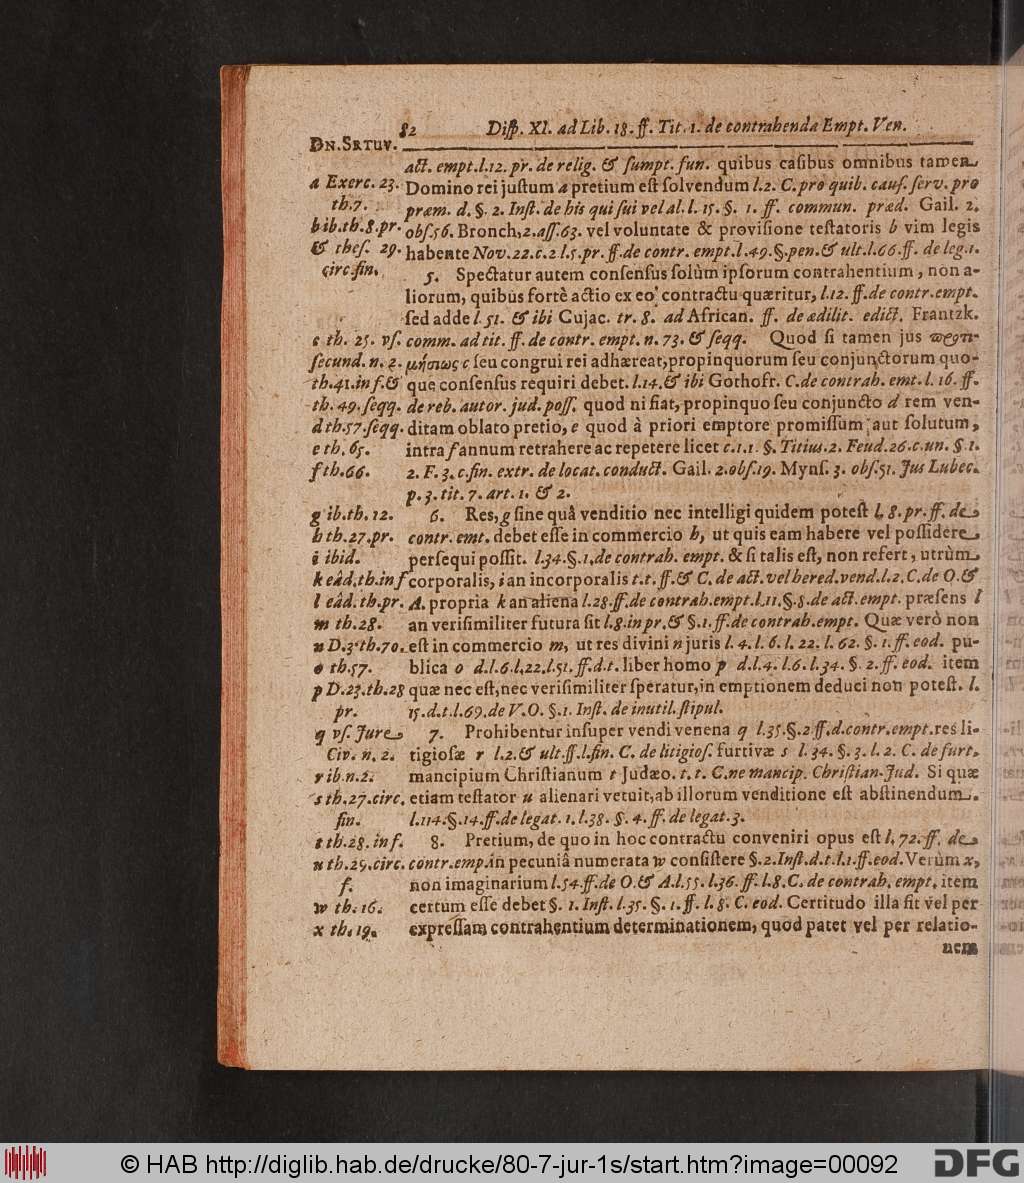 82 Disp. XI. ad Lib. 18. ff. Tit. 1. de contrahenda Empt. Ven.
DN. SRTUV.
act. empt. l. 12. pr. de relig. & sumpt. fun. quibus casibus omnibus tamen
a Exerc. 23. Domino rei justum a pretium est solvendum l. 2. C. pro quib. caus. serv. pro
th. 7. præm. d. §. 2. Inst. de his qui sui vel al. l. 15. §. 1. ff. commun. præd. Gail. 2.
b ib. th. 8. pr. obs. 56. Bronch, 2. ass. 63. vel voluntate & provisione testatoris b vim legis
& thes. 29. habente Nov. 22. c. 2 l. 5. pr. ff. de contr. empt. l. 49. §. pen. & ult. l. 66. ff. de leg. 1.
circ. fin. 5. Spectatur autem consensus solùm ipsorum contrahentium, non a-
liorum, quibus fortè actio ex eo contractu quæritur, l. 12. ff. de contr. empt.
sed adde l. 51. & ibi Cujac. tr. 8. ad African. ff. de ædilit. edict. Frantzk.
c th. 25. vs. comm. ad tit. ff. de contr. empt. n. 73. & seqq. Quod si tamen jus προτι-
secund. n. 2. μήσιως c seu congrui rei adhæreat, propinquorum seu conjunctorum quo-
th. 41. in f. & que consensus requiri debet. l. 14. & ibi Gothofr. C. de contrah. emt. l. 16. ff.
th. 49. seqq. de reb. autor. jud. poss. quod ni fiat, propinquo seu conjuncto d rem ven-
d th. 57. seqq. ditam oblato pretio, e quod à priori emptore promissum aut solutum,
e th. 65. intra f annum retrahere ac repetere licet c. 1. 1. §. Titius. 2. Feud. 26. c. un. §. 1.
f th. 66. 2. F. 3. c. fin. extr. de locat. conduct. Gail. 2. obs. 19. Myns. 3. obs. 51. Jus Lubec.
p. 3. tit. 7. art. 1. & 2.
g ib. th. 12. 6. Res, g sine quâ venditio nec intelligi quidem potest l. 8. pr. ff. de
h th. 27. pr. contr. emt. debet esse in commercio h, ut quis eam habere vel possidere
i ibid. persequi possit. l. 34. §. 1. de contrah. empt. & si talis est, non refert, utrùm
k eâd. th. in f corporalis, i an incorporalis t. t. ff. & C. de act. vel hered. vend. l. 2. C. de O. &
l eâd. th. pr. A. propria k an aliena l. 28. ff. de contrah. empt. l. 11. §. 8. de act. empt. præsens l
m th. 28. an verisimiliter futura sit l. 8. in pr. & §. 1. ff. de contrah. empt. Quæ verò non
n D. 3. th. 70. est in commercio m, ut res divini n juris l. 4. l. 6. l. 22. l. 62. §. 1. ff. eod. pu-
o th. 57. blica o d. l. 6. l. 22. l. 51. ff. d. t. liber homo p d. l. 4. l. 6. l. 34. §. 2. ff. eod. item
p D. 23. th. 28 quæ nec est, nec verisimiliter speratur, in emptionem deduci non potest. l.
pr. 15. d. t. l. 69. de V. O. §. 1. Inst. de inutil. stipul.
q vs. Jure 7. Prohibentur insuper vendi venena q l. 35. §. 2 ff. d. contr. empt. res li-
Civ. n. 2. tigiosæ r l. 2. & ult. ff. l. fin. C. de litigios. furtivæ s l. 34. §. 3. l. 2. C. de furt.
r ib. n. 2. mancipium Christianum t Judæo. t. t. C. ne mancip. Christian. Jud. Si quæ
s th. 27. circ. etiam testator u alienari vetuit, ab illorum venditione est abstinendum.
fin. l. 114. §. 14. ff. de legat. 1. l. 38. §. 4. ff. de legat. 3.
t th. 28. in f. 8. Pretium, de quo in hoc contractu conveniri opus est l. 72. ff. de
u th. 29. circ. contr. emp. in pecuniâ numerata w consistere §. 2. Inst. d. t. l. 1. ff. eod. Verùm x,
f. non imaginarium l. 54. ff. de O. & A. l. 55. l. 36. ff. l. 8. C. de contrah. empt. item
w th. 16. certum esse debet §. 1. Inst. l. 35. §. 1. ff. l. 8. C. eod. Certitudo illa fit vel per
x th. 19. expressam contrahentium determinationem, quod patet vel per relatio-
nem
© HAB http://diglib.hab.de/drucke/80-7-jur-1s/start.htm?image=00092 DFG